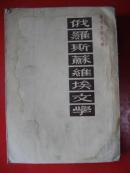 俄羅斯蘇維埃文學